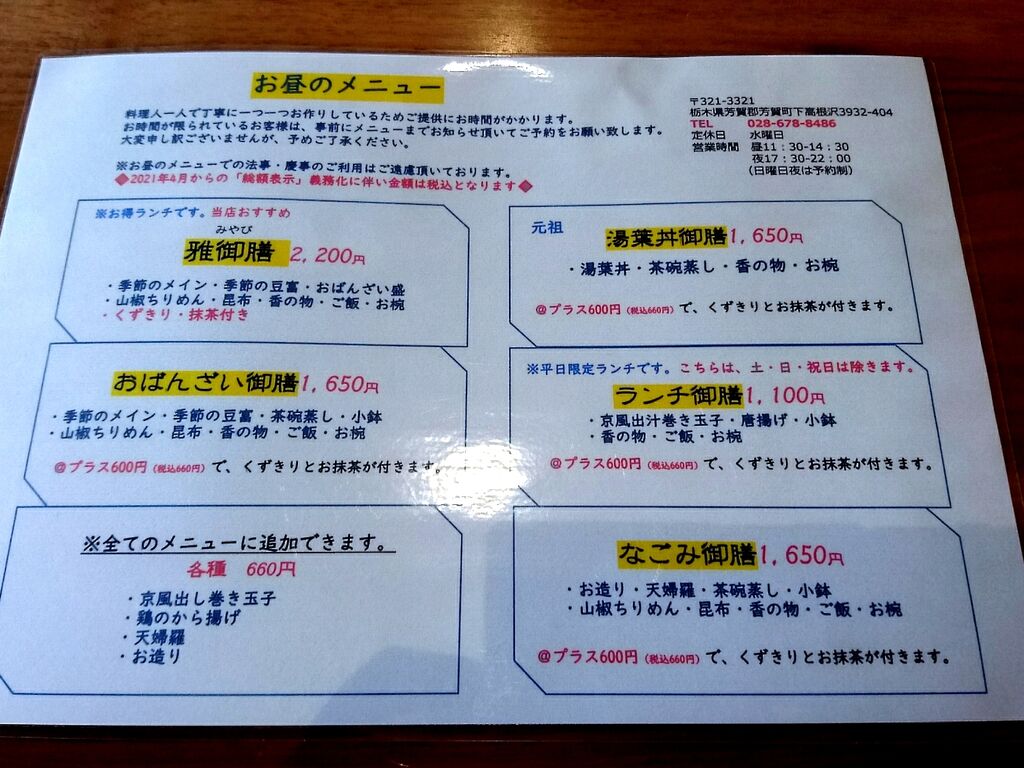 お昼のメニュー
料理人一人で丁寧に一つ一つお作りしているためご提供にお時間がかかります。
お時間が限られているお客様は、事前にメニューまでお知らせ頂いてご予約をお願い致します。
大変申し訳ございませんが、予めご了承ください。
※お昼のメニューでの法事・慶事のご利用はご遠慮頂いております。
◆2021年4月からの「総額表示」義務化に伴い金額は税込となります◆
〒321-3321
栃木県芳賀郡芳賀町下高根沢3932-404
TEL 028-678-8486
定休日 水曜日
営業時間 昼11：30-14：30
夜17：30-22：00
(日曜日夜は予約制)
※お得ランチです。当店おすすめ
みやび
雅御膳 2,200円
・季節のメイン・季節の豆富・おばんざい盛
・山椒ちりめん・昆布・香の物・ご飯・お椀
・くずきり・抹茶付き
元祖
湯葉丼御膳1,650円
・湯葉丼・茶碗蒸し・香の物・お椀
@プラス600円（税込660円）で、くずきりとお抹茶が付きます。
おばんざい御膳1,650円
・季節のメイン・季節の豆富・茶碗蒸し・小鉢
・山椒ちりめん・昆布・香の物・ご飯・お椀
@プラス600円（税込660円）で、くずきりとお抹茶が付きます。
※平日限定ランチです。こちらは、土・日・祝日は除きます。
ランチ御膳1,100円
・京風出汁巻き玉子・唐揚げ・小鉢
・香の物・ご飯・お椀
@プラス600円（税込660円）で、くずきりとお抹茶が付きます。
※全てのメニューに追加できます。
各種 660円
・京風出し巻き玉子
・鶏のから揚げ
・天婦羅
・お造り
なごみ御膳1,650円
・お造り・天婦羅・茶碗蒸し・小鉢
・山椒ちりめん・昆布・香の物・ご飯・お椀
@プラス600円（税込660円）で、くずきりとお抹茶が付きます。